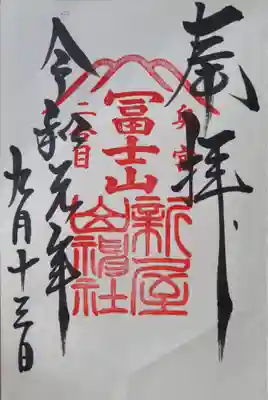 奉拝
冨士山
二合目
新屋
山神社
令和元年
九月十三日